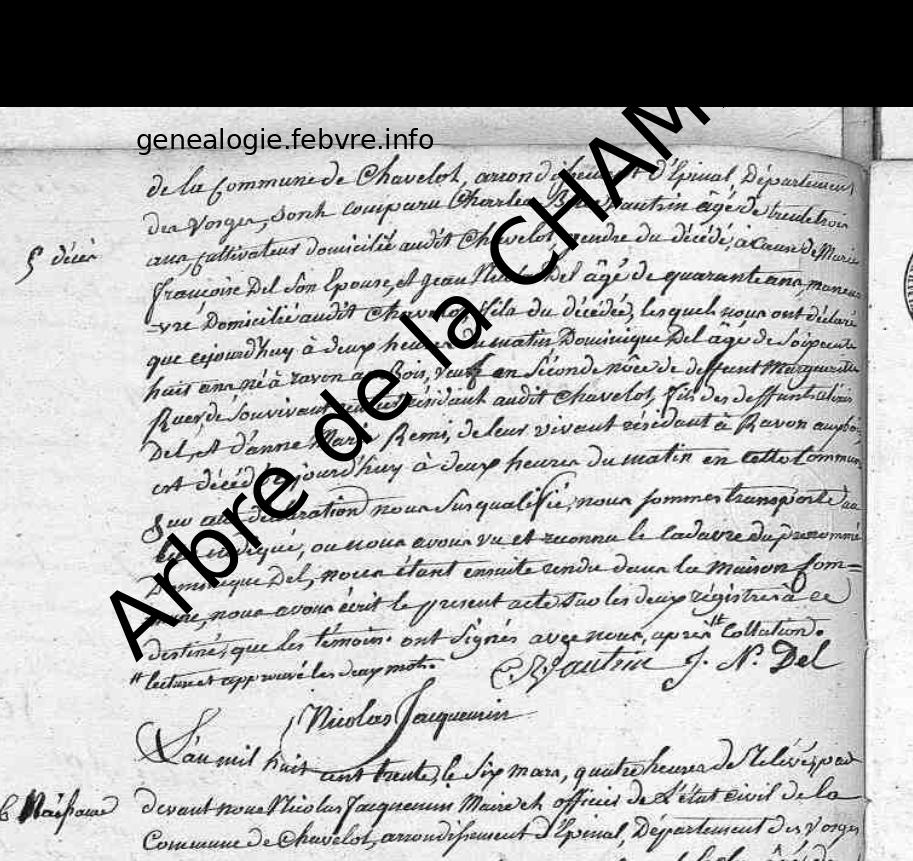 genealogie.febvre.info
Arbre de la CHAM
de la Commune de Chavelot, arrondissement d'Epinal Département
des Vosges, sont comparu Charles Vautrin âgé de trente trois
5 décès
ans, Cultivateur domicilié audit Chavelot, gendre du décédé, à cause de Marie
françoise Del son Epouse, et Jean Nicolas Del âgé de quarante ans, manœu
=vre Domicilié audit Chavelot, fils du décédé, lesquels nous ont déclaré
que cejourd'huy à deux heures du matin Dominique Del âgé de Soixante
huit ans né à ravon aux Bois, veuf en Séconde nôce de deffunt Marguerite
de Souvivant résident audit Chavelot, fils des deffunts
Del, et d'anne Marie Remi, de leur vivant résidant à Ravon aux bois,
est décédé cejourd'huy à deux heures du matin en cette Commune,
Sur cette déclaration nous Susqualifié, nous sommes transporté au
lieu indiqué, ou nous avons vu et reconnu le Cadavre du prénommé
Dominique Del, nous étant ensuite rendu dans la Maison Com=
mune, nous avons écrit le present acte Sur les deux régistres à ce
destiné, que les témoins ont Signés avec nous, après lt Collation.
lt lecture et approuvé les deux mots.
C. Vautrin J. N. Del
Nicolas Jacquemin
L'an mil huit cent trente, le Six mars, quatre heures de Relevée, par
Naissance
devant nous Nicolas Jacquemin Maire et officier de L'état Civil de la
Commune de Chavelot, arrondissement d'Epinal, Département des Vosges